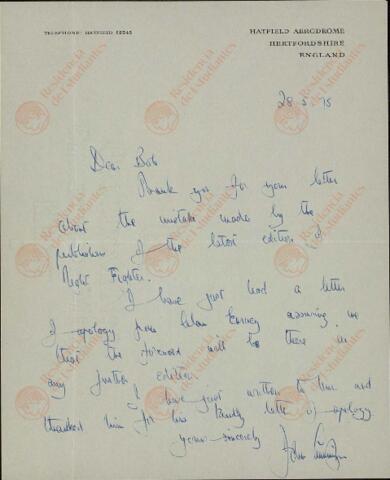 TELEPHONE: HATFIELD 62345
HATFIELD AERODROME
HERTFORDSHIRE
ENGLAND
28 5 75
Dear Bob
Thank you for your letter
about the mistake made by the
publishers of the latest edition of
Night Fighter.
I have just had a letter
of apology from assuring me
that the foreword will be there in
any further edition.
I have just written to him and
thanked him for his kindly letter of apology
yours sincerely
John Cunningham
Residencia
de Estudiantes